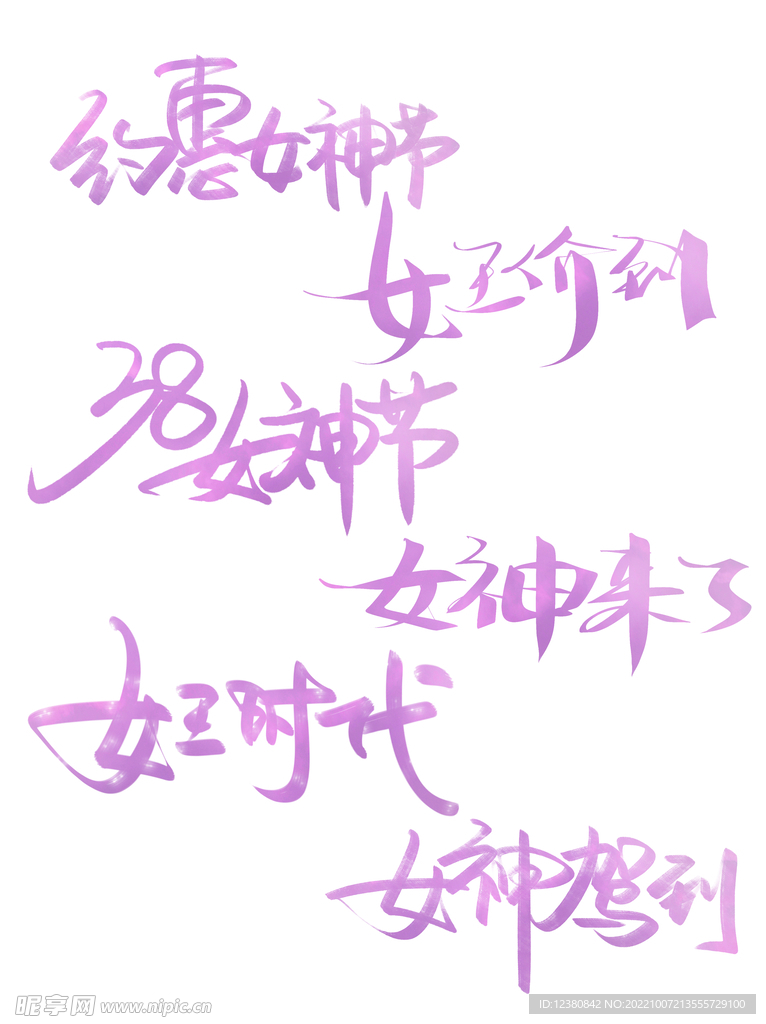 约惠女神节
女王价到
38女神节
女神来了
女王时代
女神驾到
昵享网 www.nipic.cn
ID:12380842 NO:20221007213555729100